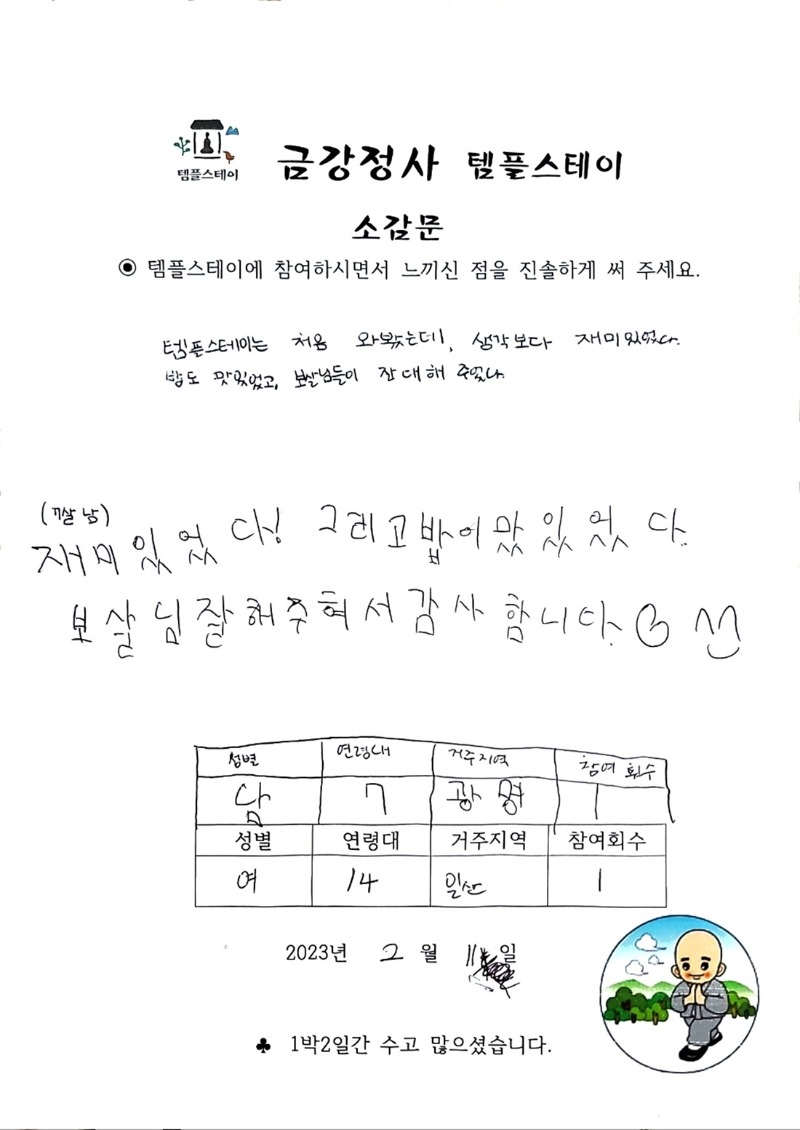 템플스테이
금강정사 템플스테이
소감문
◉ 템플스테이에 참여하시면서 느끼신 점을 진솔하게 써 주세요.
템플스테이는 처음 와봤는데, 생각보다 재미있었다.
밥도 맛있었고, 보살님들이 잘 대해 주었다.
(7살 남)
재미있었다! 그리고 밥이 맛있었다.
보살님 잘해주셔서 감사합니다.
성별 연령대 거주지역 참여 회수
남 7 광명 1
성별 연령대 거주지역 참여회수
여 14 일산 1
2023년 2 월 11 일
♣ 1박2일간 수고 많으셨습니다.